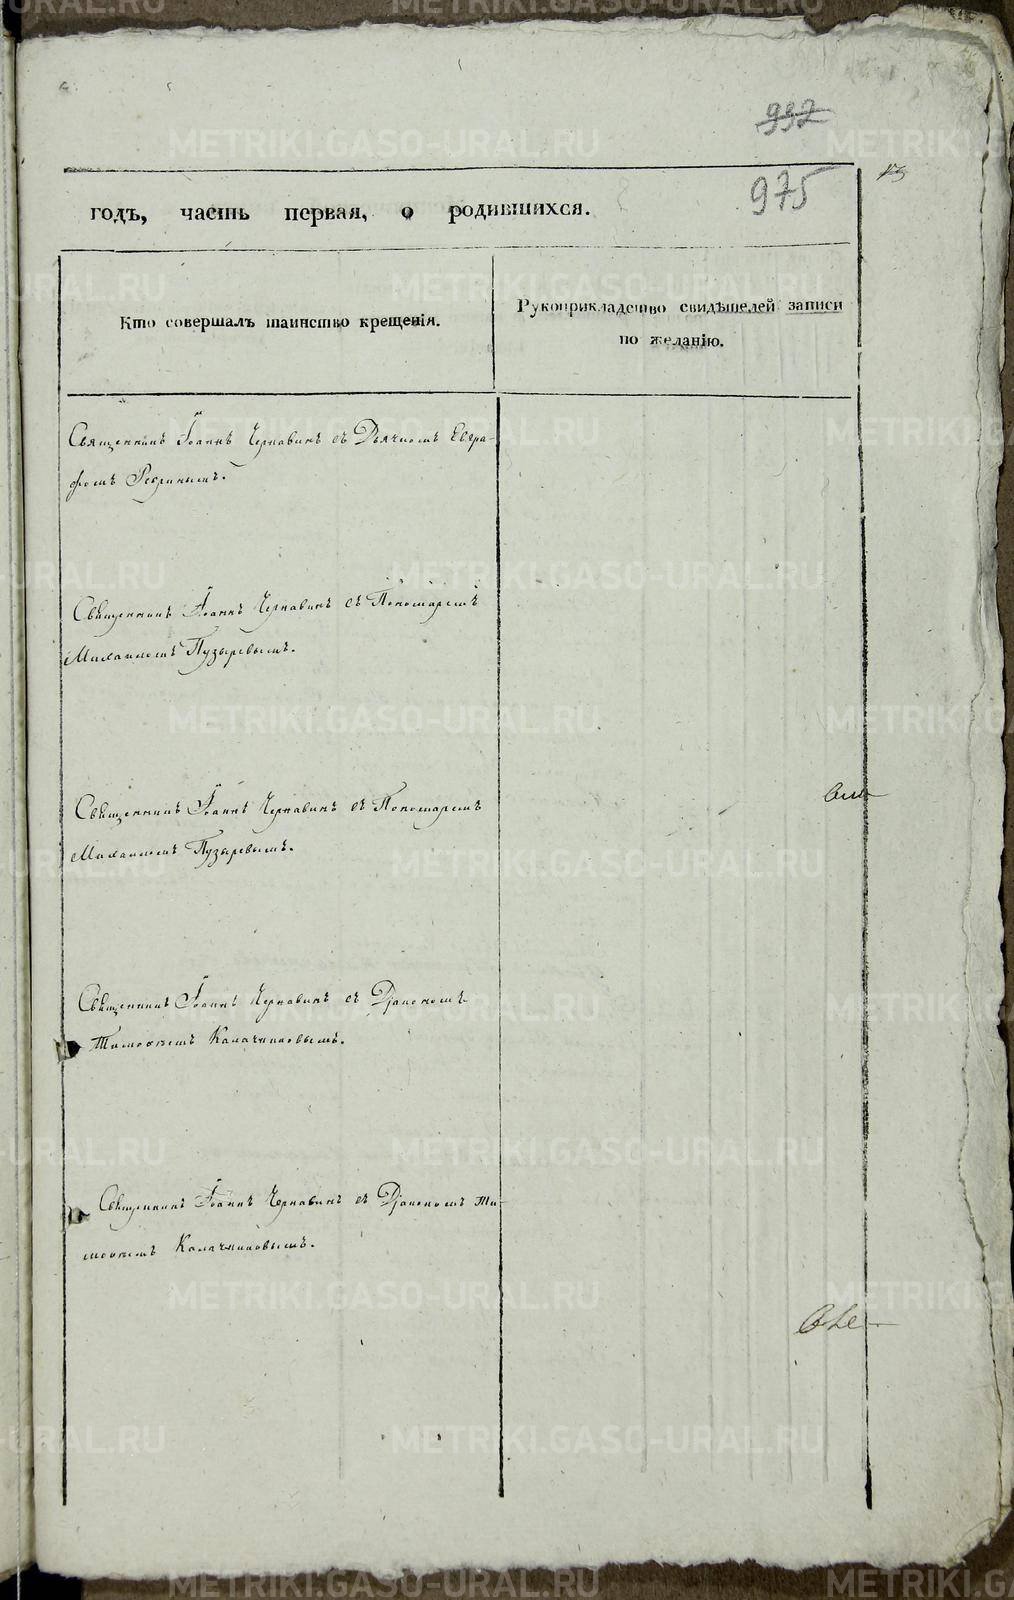 937
975
годъ, часть первая, о родившихся.
Кто совершалъ таинство крещенія.
Рукоприкладство свидѣтелей записи
по желанію.
Священникъ Іоаннъ Чернавинъ съ Дьячкомъ Евгра-
фомъ
Священникъ Іоаннъ Чернавинъ съ Пономаремъ
Михаиломъ Пузыревымъ.
Священникъ Іоаннъ Чернавинъ съ Пономаремъ
Михаиломъ Пузыревымъ.
Священникъ Іоаннъ Чернавинъ съ Діакономъ
Тимоѳеемъ Калачниковымъ.
Священникъ Іоаннъ Чернавинъ съ Діакономъ Ти-
моѳеемъ Калачниковымъ.
METRIKI.GASO-URAL.RU